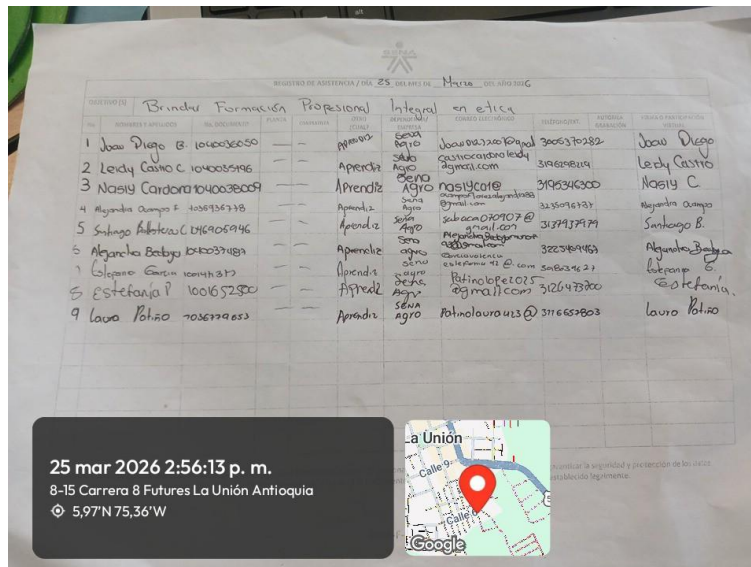 alt
SENA
REGISTRO DE ASISTENCIA / DÍA 25 DEL MES DE Marzo DEL AÑO 2026
OBJETIVO(S) Brindar Formación Profesional Integral en etica
No. NOMBRES Y APELLIDOS No. DOCUMENTO PLANTA CONTRATISTA OTRO ¿CUÁL? DEPENDENCIA/ EMPRESA CORREO ELECTRÓNICO TELÉFONO/EXT. AUTORIZA GRABACIÓN FIRMA O PARTICIPACIÓN VIRTUAL
1 Joau Diego B. 1040036050 — — Aprendiz Sena Agro 3006370282 Joau Diego
2 Leidy Castro C 1040035196 — — Aprendiz Sena Agro castrocardonaleidy @gmail.com 3196298219 Leidy Castro
3 Nasly Cardona 1040038009 — — Aprendiz Sena Agro naslycar@ 3195346300 Nasly C
4 Alejandra Ocampo F 1035936778 — — Aprendiz Sena Agro @gmail.com 3235096737 Alejandra Ocampo
5 Santiago 1046905946 — — Aprendiz Sena Agro sabaca070907@ gmail.com 3137937979 Santiago B.
6 Alejandra Bedoya 1040037487 — — Aprendiz Sena agro 3223469463 Alejandra Bedoya
7 Estepania Garcia — — Aprendiz Sena agro Estepania G.
8 Estefanía P 1001652800 — — Aprediz Sena Agro Patinolope2025 @gmail.com 3126473700 Estefanía.
9 Laura Patiño 1036779653 — — Aprendiz SENA Agro Patinolaura423@ 3116657803 Laura Patiño
25 mar 2026 2:56:13 p. m.
8-15 Carrera 8 Futures La Unión Antioquia
5,97'N 75,36'W
La Unión
Calle 9
Calle 6
Google
la seguridad y protección de los datos
establecido legalmente.